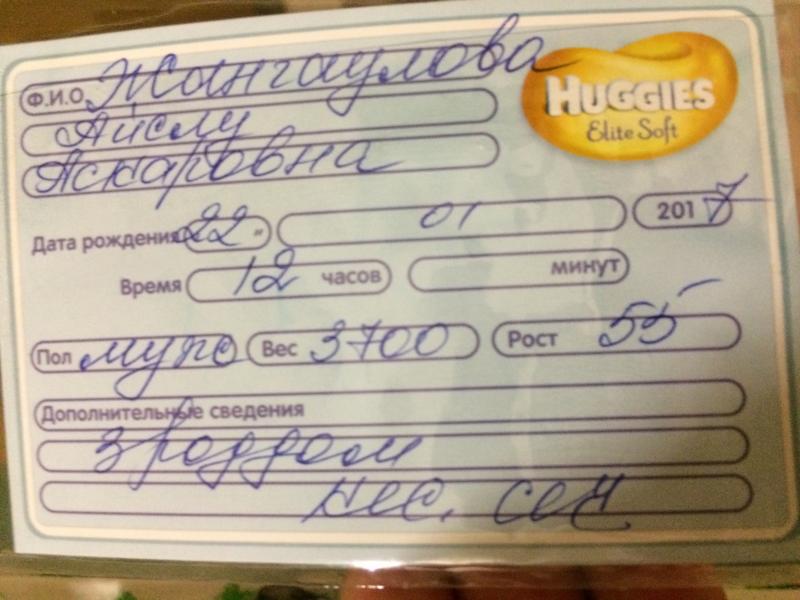 Ф.И.О Жангаулова
Айслу
Аскаровна
HUGGIES
Elite Soft
Дата рождения 22 " 01 2017
Время 12 часов минут
Пол муж Вес 3700 Рост 55
Дополнительные сведения
3 роддом
кес. сеч